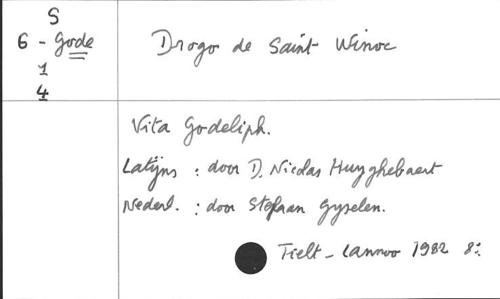 S
6 - Gode
1
4
Drogo de Saint-Winoc
Vita Godeliph.
Latijns : door D. Nicolas Huyghebaert
Nederl. : door Stefaan Gyselen.
Tielt - Lannoo 1982 8: